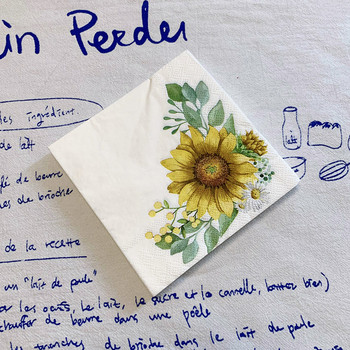 in Perdu
des ingrédients
de lait
de beurre
de brioche
de la recette
un "lait de poule"
les oeufs, le lait, le sucre et la cannelle, battez bien)
de beurre dans une poêle
tranches de brioche dans le lait de poule